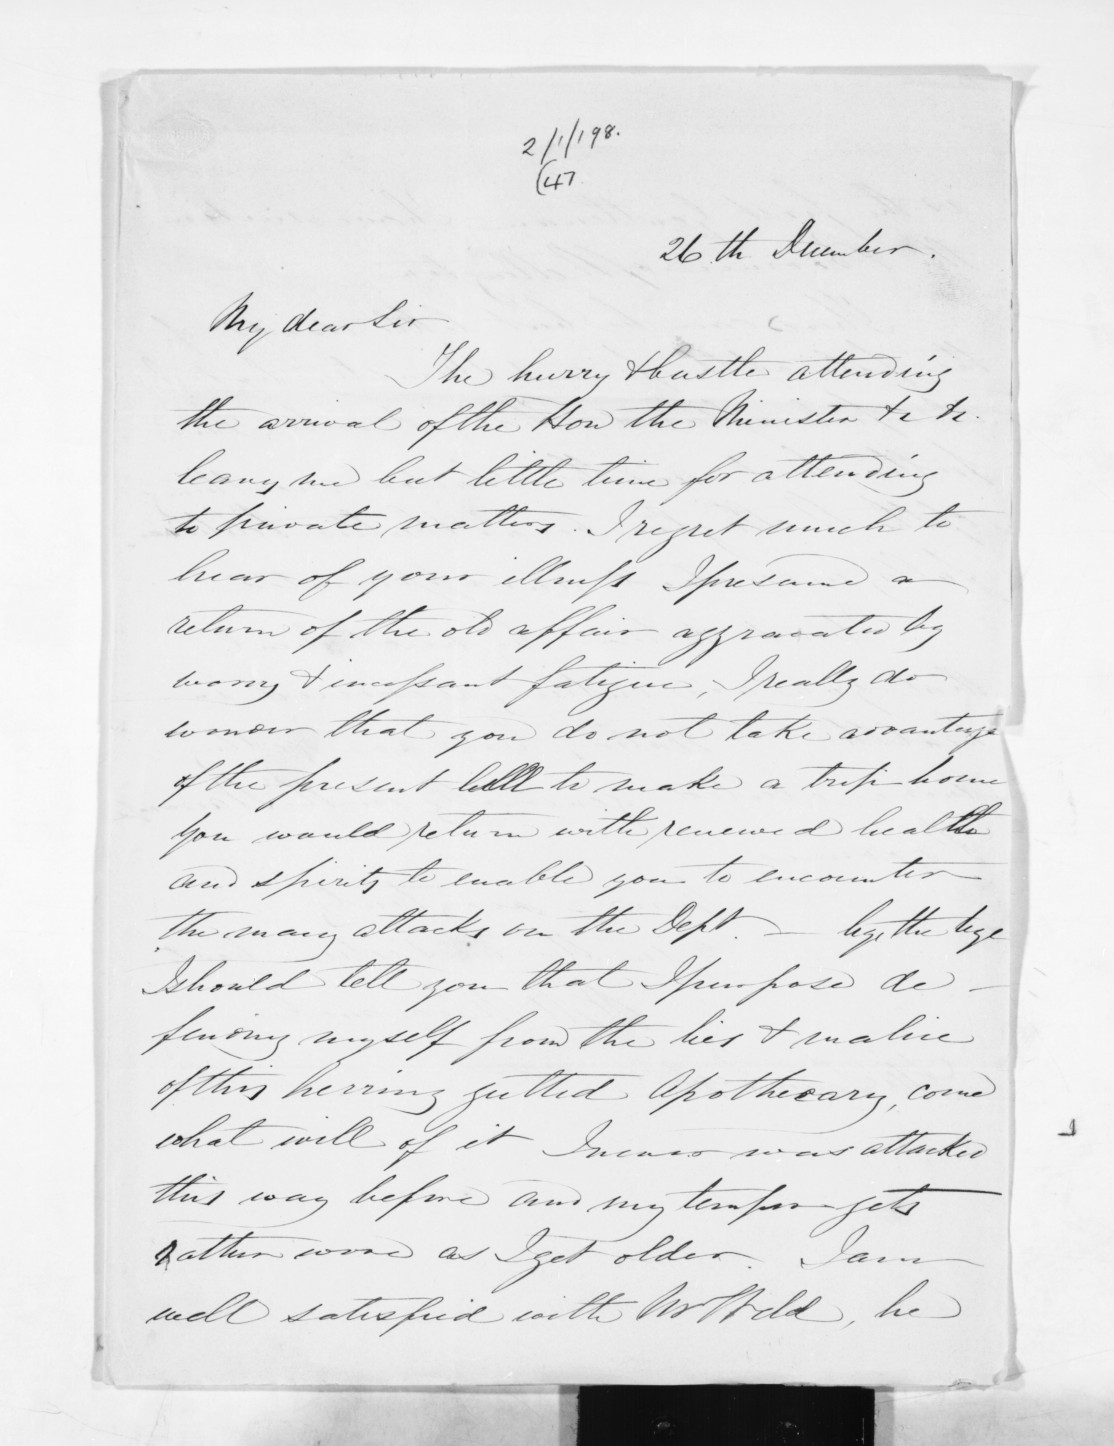 2/1/198.
(47
26th December.
My dear Sir
The hurry & bustle attending
the arrival of the Hon the Minister &c &c.
leaves me but little time for attending
to private matters. I regret much to
hear of your illness I presume a
return of the old affair aggravated by
worry & incessant fatigue, I really do
wonder that you do not take advantage
of the present lull to make a trip home
you would return with renewed health
and spirits to enable you to encounter
the many attacks on the Dept. — by the bye
I should tell you that I purpose de -
fending myself from the lies & malice
of this herring gutted Apothecary, come
what will of it I never was attacked
this way before and my temper gets
rather worse as I get older. I am
well satisfied with Mr , he